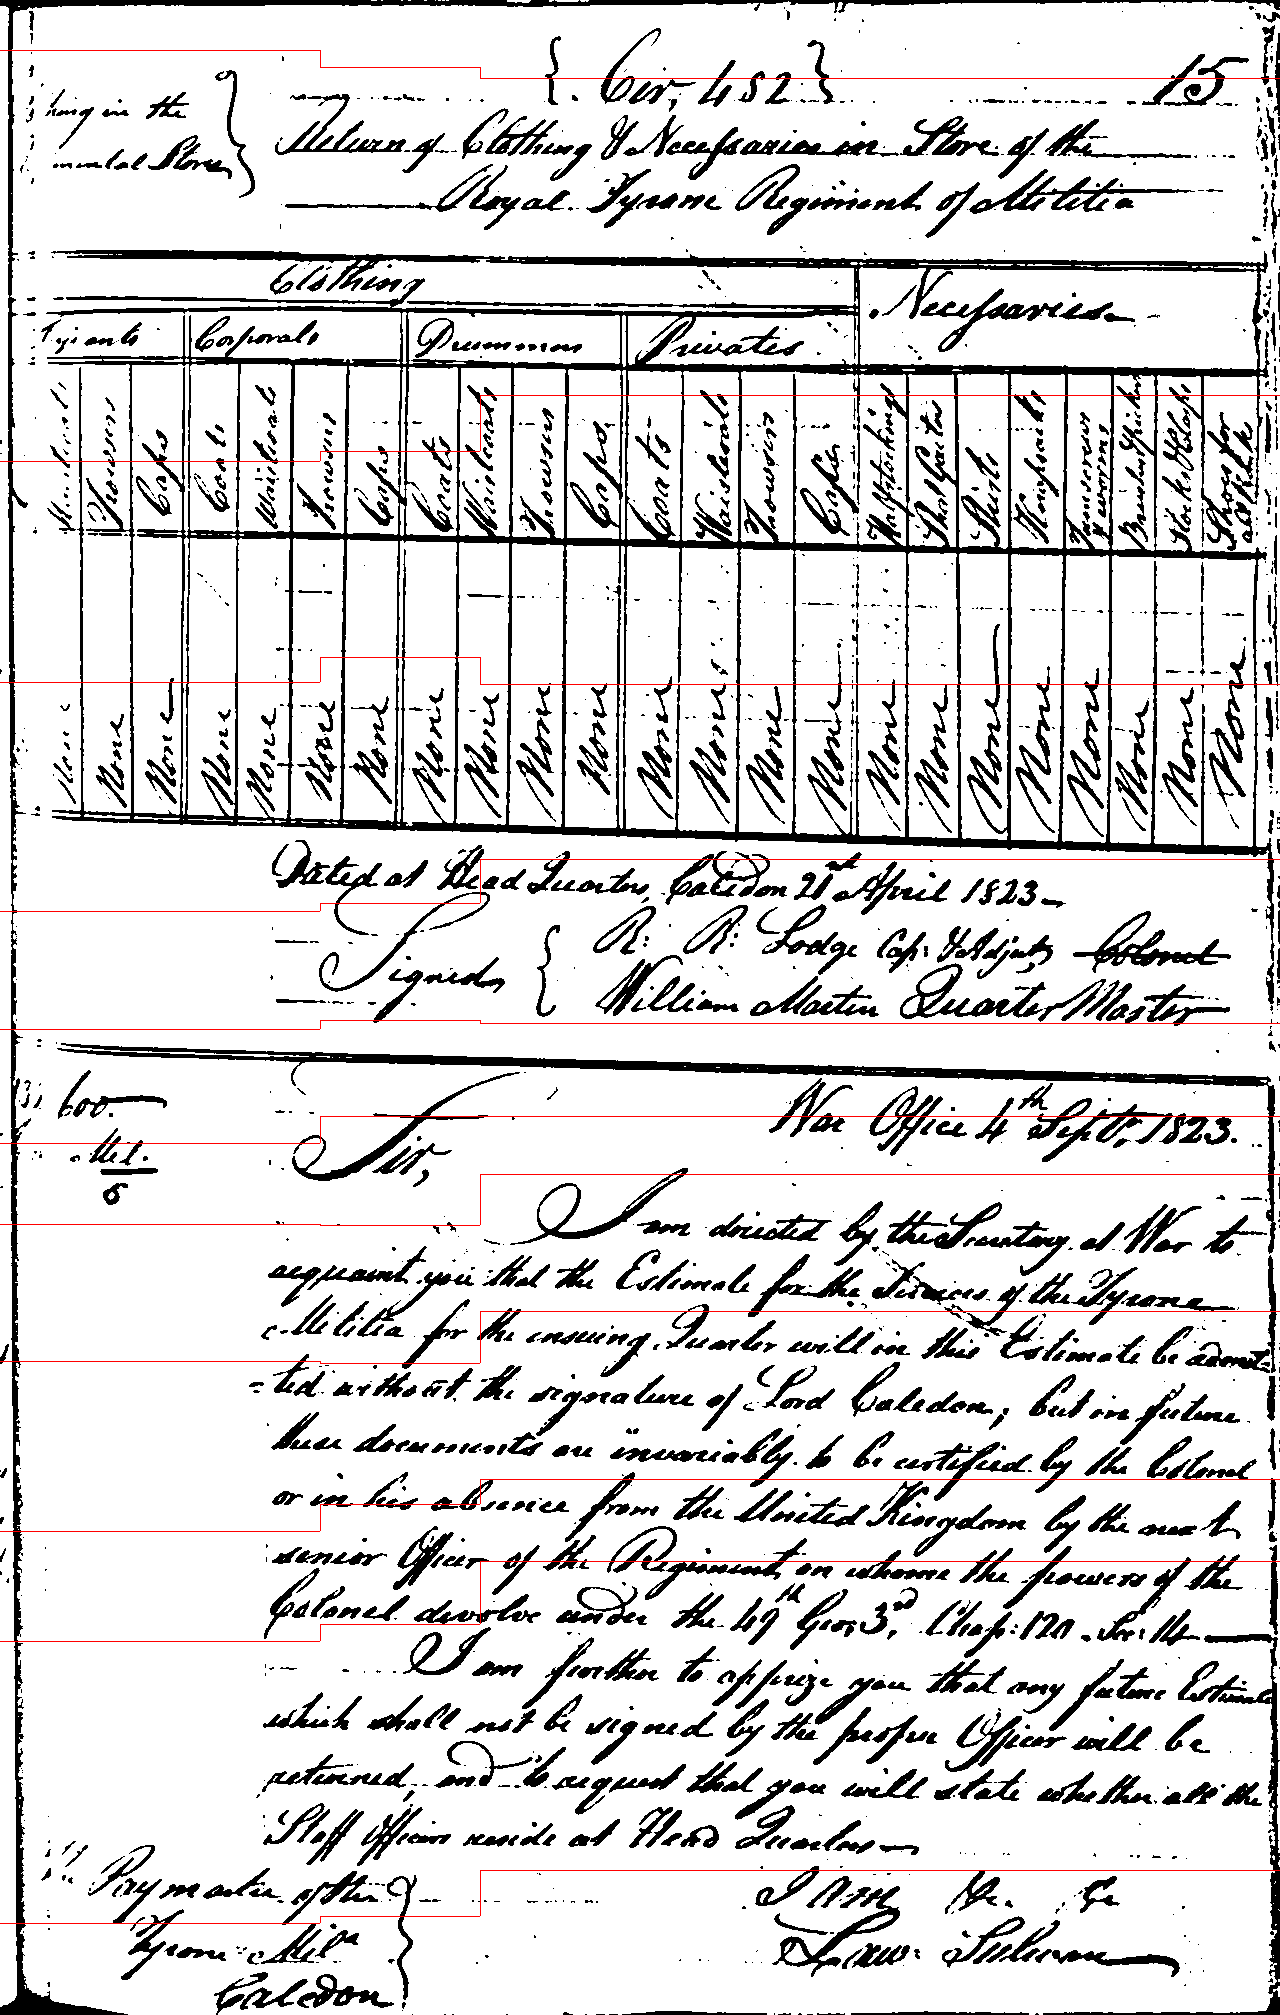 { Cir, 482 } 15
hing in the
mental Stores
Return of Clothing & Necessaries in Store of the
Royal Tyrone Regiment of Militia
Clothing
Necessaries
Corporals Drummers Privates
Trowsers Caps Coats Waistcoats Trowsers Caps Coats Waistcoats Trowsers Caps Coats Waistcoats Trowsers Caps Half Stockings Short Gaiters Shirts Knapsacks Turnscrews & worms Stocks & Clasps Shoes for
None None None None None None None None None None None None None None None None None None None None None None None
Dated at Head Quarters, Caledon 21st April 1823
Signed, { R: R: Lodge Cap: & Adjut, Colonel
William Martin Quarter Master
600.
Mil.
6
War Office 4th Septr, 1823.
Sir,
I am directed by the Secretary at War to
acquaint you that the Estimate for the Services of the Tyrone
Militia for the ensuing Quarter will in this Estimate be admit-
=ted without the signature of Lord Caledon; but in future
these documents are invariably to be certified by the Colonel
or in his absence from the United Kingdom by the next
senior Officer of the Regiment on whome the powers of the
Colonel devolve under the 49th Geo: 3rd, Chap: 120 . Sec: 14
I am further to apprize you that any future Estimate
which shall not be signed by the proper Officer will be
returned, and to request that you will state whether all the
Staff Officers reside at Head Quarters
Paymaster of the
Tyrone Mila
Caledon
I am &c. &c
Law: Sulivan